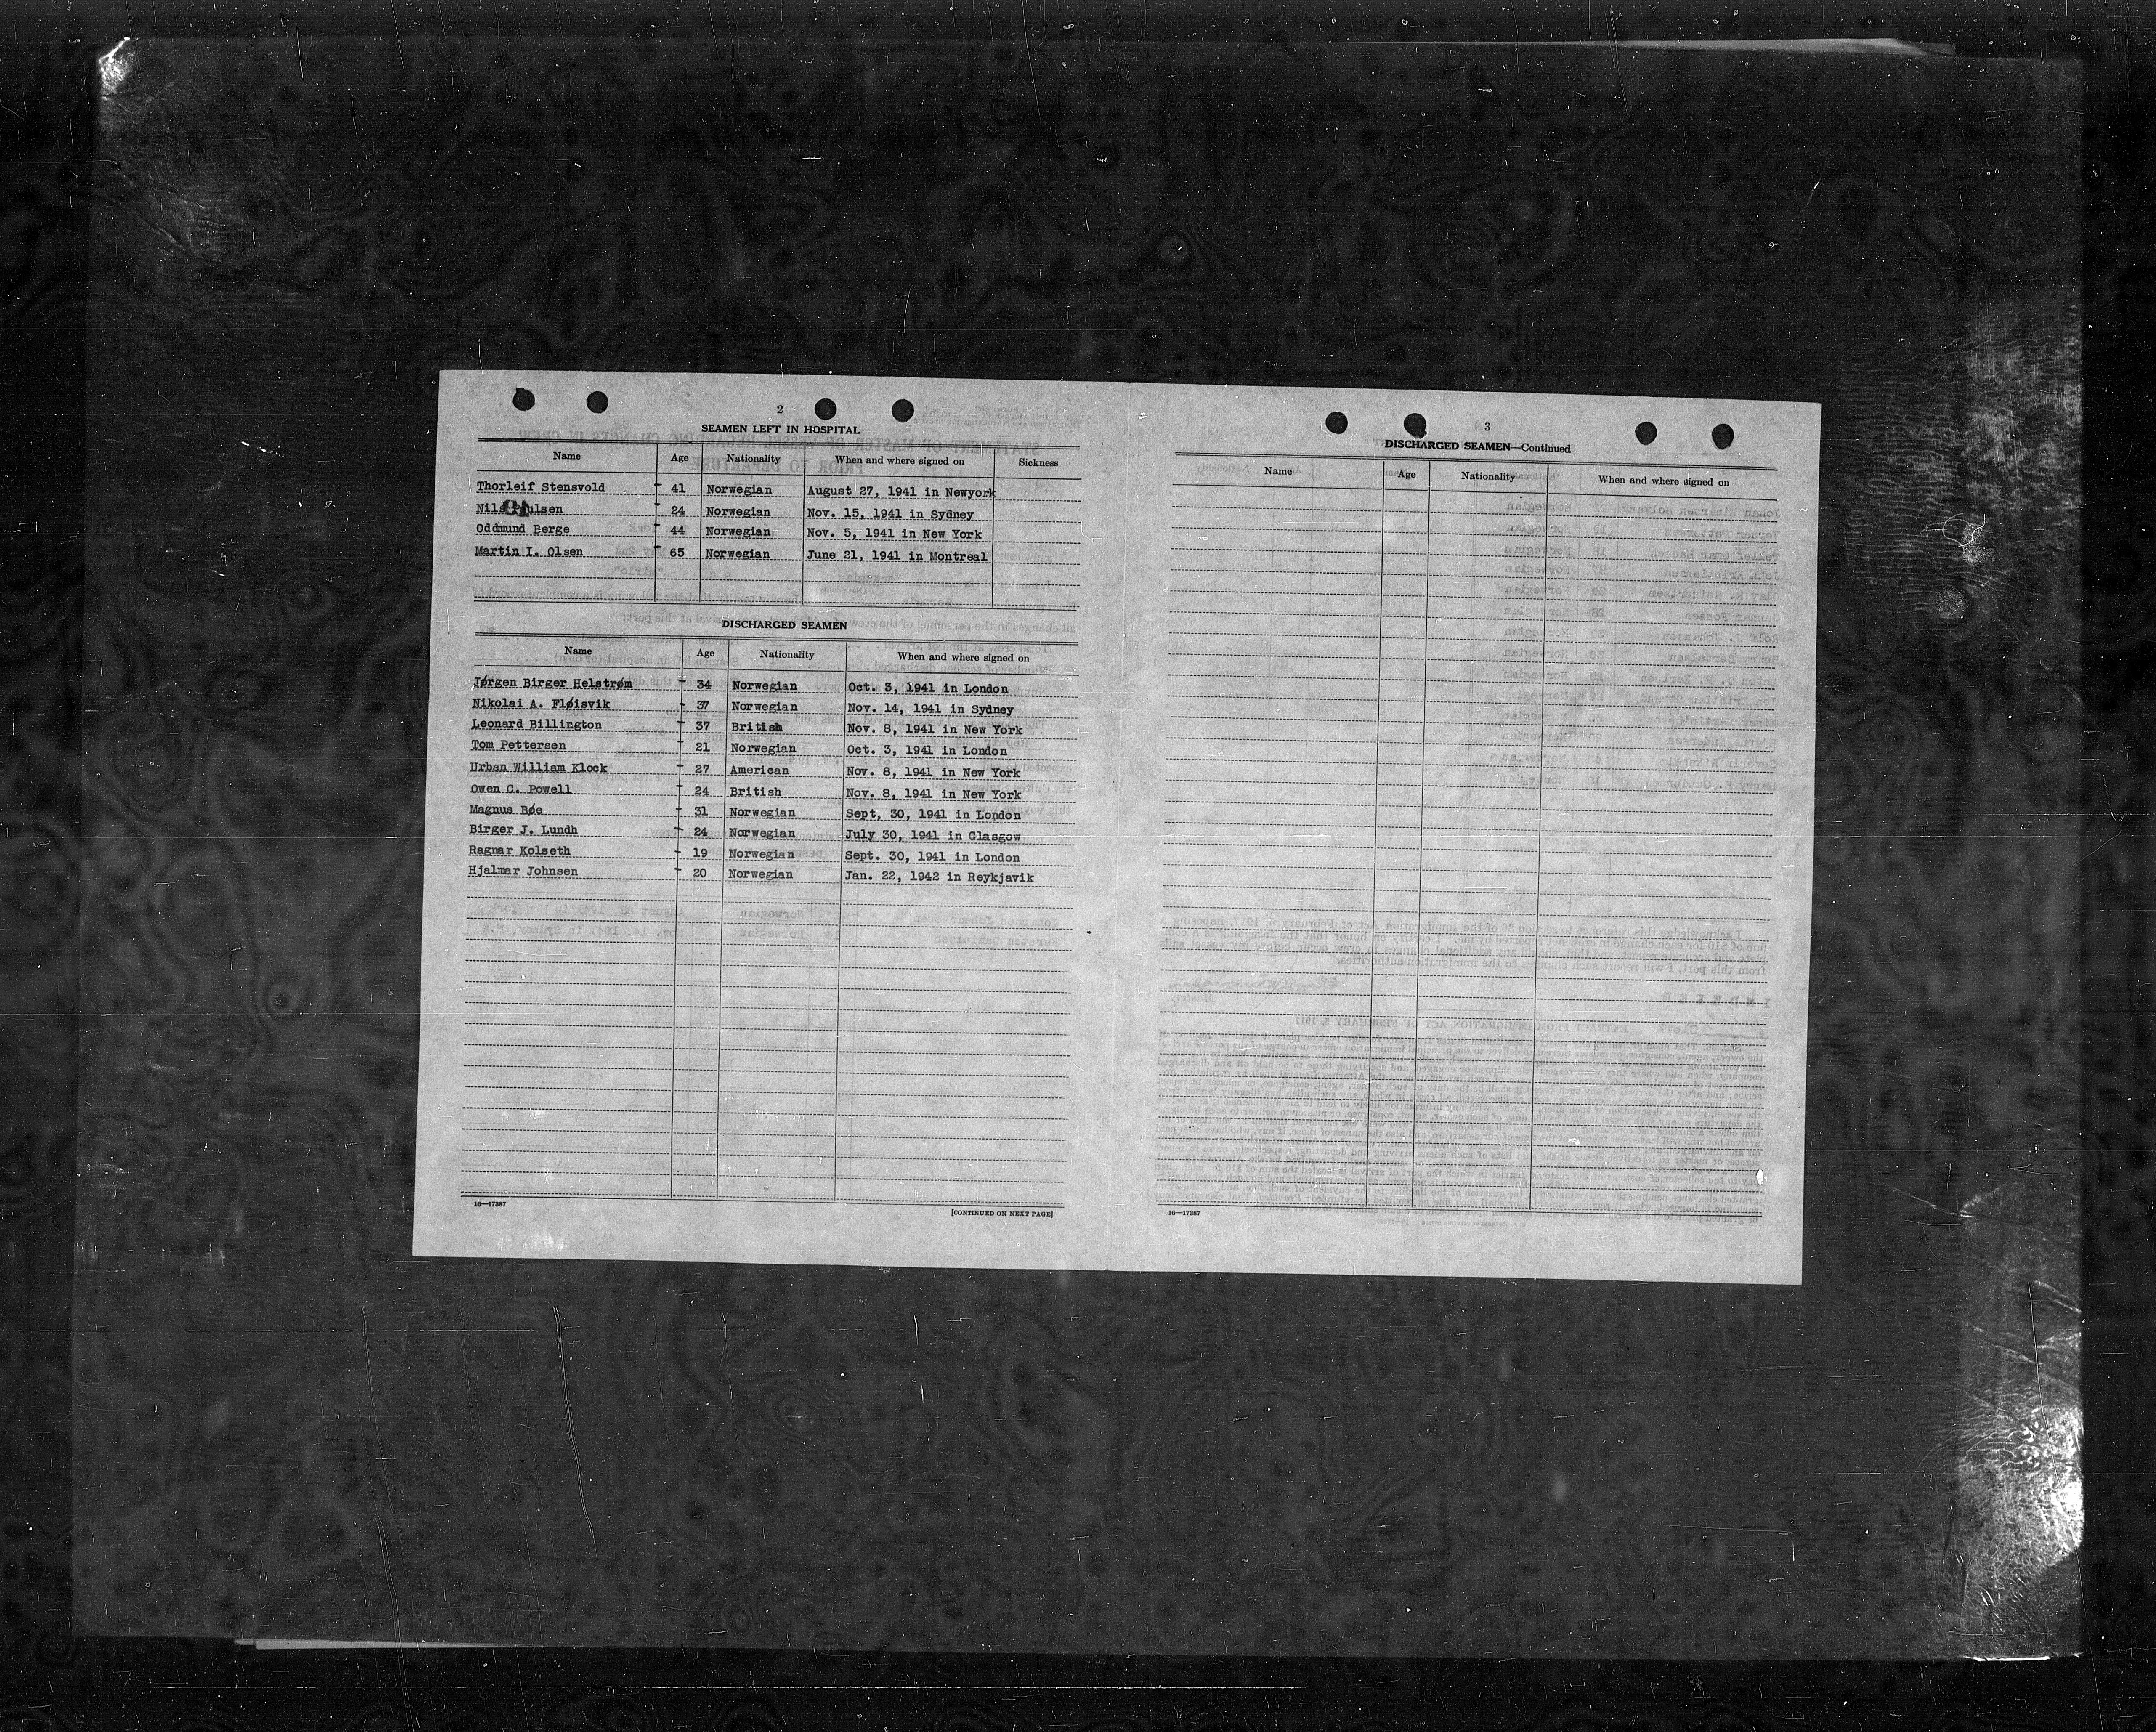 2
SEAMEN LEFT IN HOSPITAL
Name Age Nationality When and where signed on Sickness
Thorleif Stensvold 41 Norwegian August 27, 1941 in Newyork
24 Norwegian Nov. 15, 1941 in Sydney
Oddmund Berge 44 Norwegian Nov. 5, 1941 in New York
Martin I. Olsen 65 Norwegian June 21, 1941 in Montreal
DISCHARGED SEAMEN
Name Age Nationality When and where signed on
Jørgen Birger Helstrøm 34 Norwegian Oct. 3, 1941 in London
Nikolai A. Fløisvik 37 Norwegian Nov. 14, 1941 in Sydney
Leonard Billington 37 British Nov. 8, 1941 in New York
Tom Pettersen 21 Norwegian Oct. 3, 1941 in London
Urban William Klock 27 American Nov. 8, 1941 in New York
Owen C. Powell 24 British Nov. 8, 1941 in New York
Magnus Bøe 31 Norwegian Sept, 30, 1941 in London
Birger J. Lundh 24 Norwegian July 30, 1941 in Glasgow
Ragnar Kolseth 19 Norwegian Sept. 30, 1941 in London
Hjalmar Johnsen 20 Norwegian Jan. 22, 1942 in Reykjavik
16—17387
[CONTINUED ON NEXT PAGE]
3
DISCHARGED SEAMEN—Continued
Name Age Nationality When and where signed on
16—17387